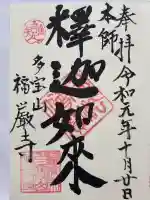 奉拝 令和元年十月廿日
本師
釋迦如來
多宝山
福厳寺